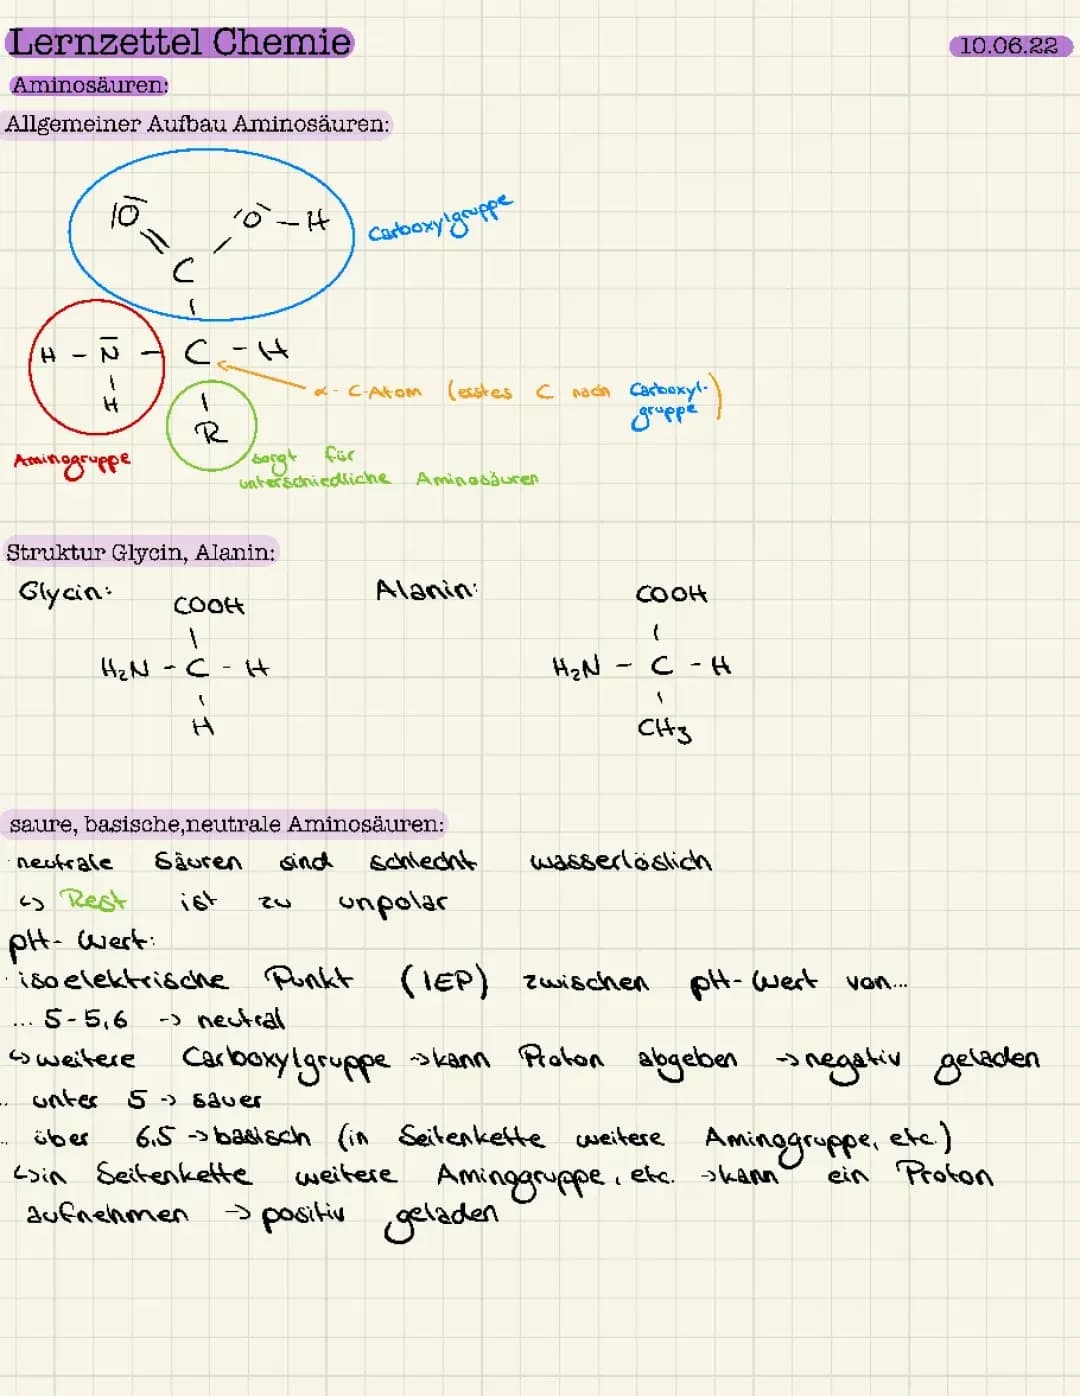 Lernzettel Chemie
10.06.22
Aminosäuren:
Allgemeiner Aufbau Aminosäuren:
|O
O - H
Carboxylgruppe
C
H - N - C - H
H
α - C-Atom (erstes C nach Carboxyl-
gruppe)
R
Aminogruppe
sorgt für
unterschiedliche Aminosäuren
Struktur Glycin, Alanin:
Glycin:
COOH
H₂N - C - H
H
Alanin:
COOH
H₂N - C - H
CH₃
saure, basische,neutrale Aminosäuren:
·neutrale Säuren sind schlecht wasserlöslich
↳ Rest ist zu unpolar
pH- Wert:
·isoelektrische Punkt (IEP) zwischen pH-Wert von...
... 5-5,6 -> neutral
↳weitere Carboxylgruppe ->kann Proton abgeben ->negativ geladen
.. unter 5 -> sauer
.. über 6,5 ->basisch (in Seitenkette weitere Aminogruppe, etc.)
↳in Seitenkette weitere Aminogruppe, etc. ->kann ein Proton
aufnehmen -> positiv geladen